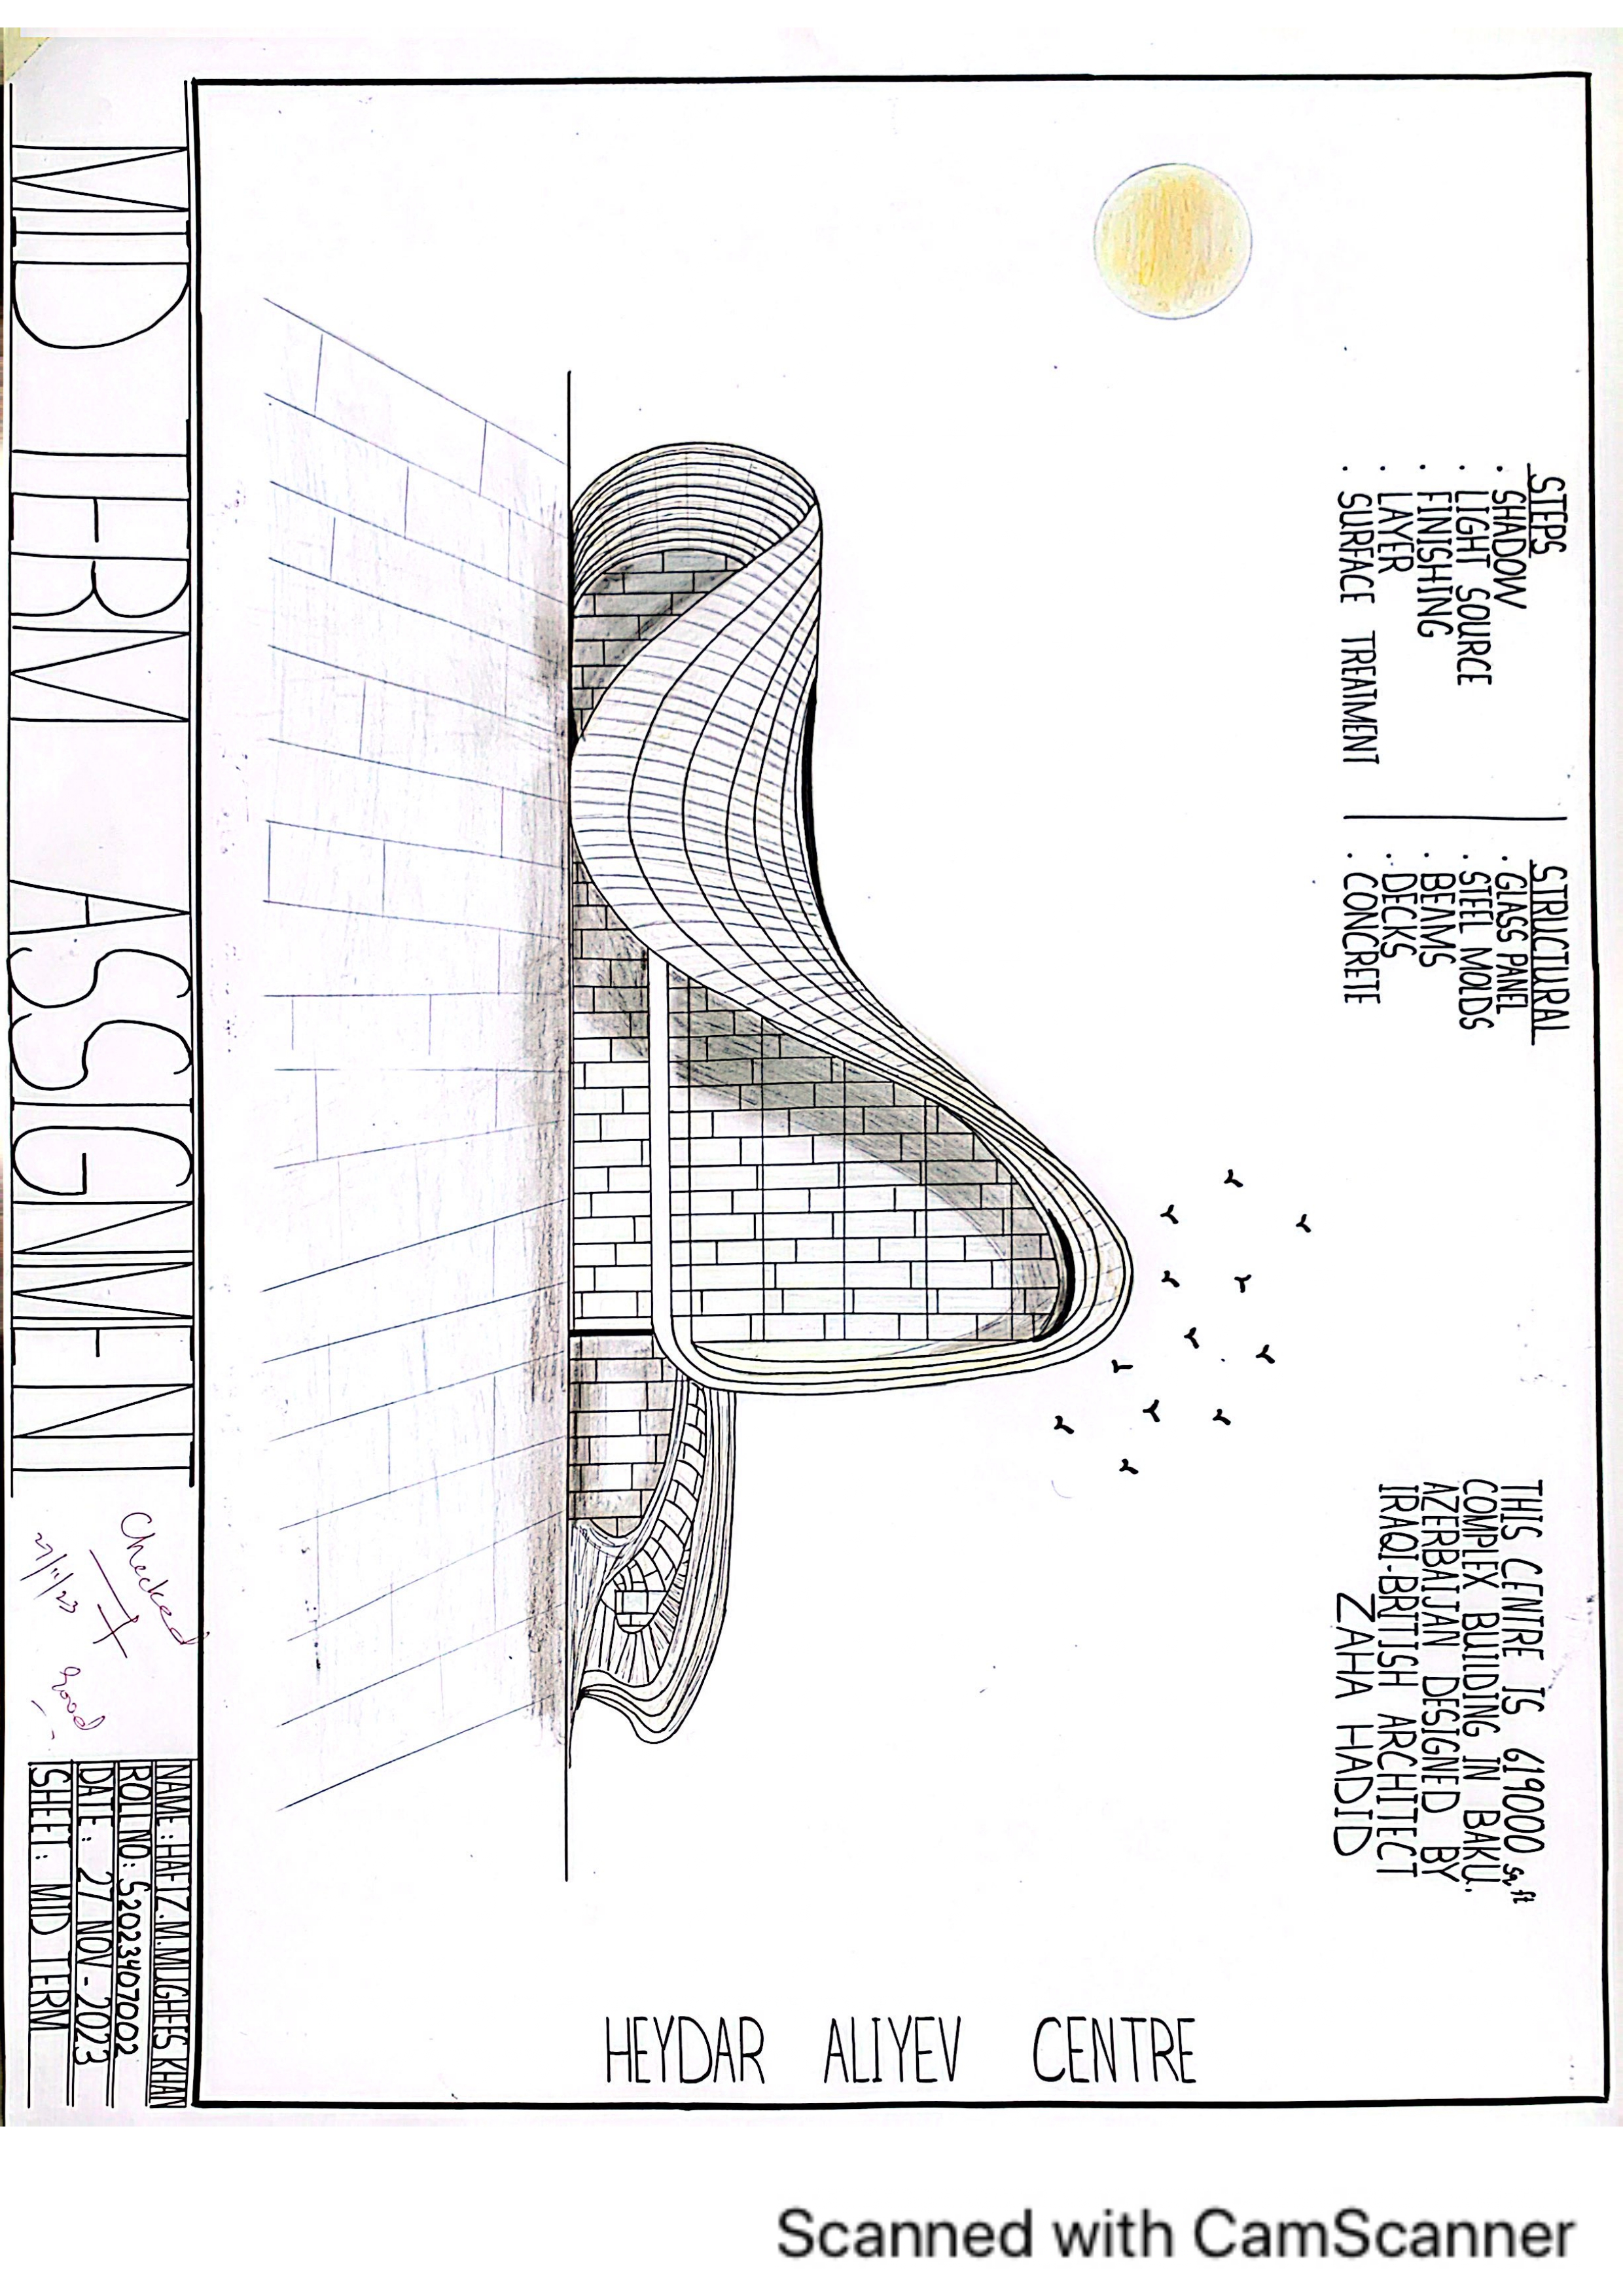 STEPS
. SHADOW
. LIGHT SOURCE
. FINISHING
. LAYER
. SURFACE TREATMENT
STRUCTURAL
. GLASS PANEL
. STEEL MOLDS
. BEAMS
. DECKS
. CONCRETE
THIS CENTRE IS 619000 sq ft
COMPLEX BUILDING IN BAKU.
AZERBAIJAN DESIGNED BY
IRAQI-BRITISH ARCHITECT
ZAHA HADID
HEYDAR ALIYEV CENTRE
MID TERM ASSIGNMENT
Checked
27/11/23
Good
NAME: HAFIZ.M.MUGHEES KHAN
ROLL NO: S2023407002
DATE: 27 NOV-2023
SHEET: MID TERM
Scanned with CamScanner